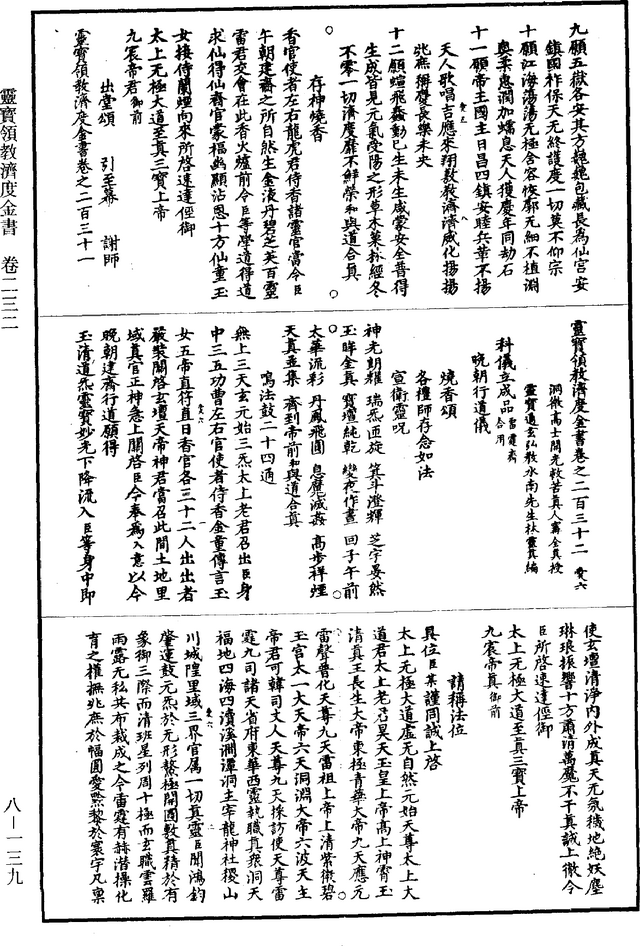 靈寶領教濟度金書　卷二三二
九願五嶽各安其方巍巍包藏長為仙宮安
鎮國祚保天元終護度一切莫不仰宗
十願江海蕩蕩无極含容恢郭无細不植淵
奧柔惠潤加蠕息天人獲慶年同劫石
十一願帝主國主日昌四鎮安睦兵革不揚
天人歌唱吉應來翔教敎濟濟威化揚揚
兆庶獲慶長樂未央
十二願蠉飛蠢動已生未生咸蒙安全普得
生成皆見元氣受陽之形草木果林經冬
不零一切濟度靡不鮮榮和與道合真
存神燒香
香官使者左右龍虎君侍香諸靈官當令臣
午朝建齋之所自然生金液丹碧芝英百靈
雷君交會在此香火爐前令臣等學道得道
求仙得仙齋官蒙福幽顯沾恩十方仙童玉
女接侍蘭煙向來所啓速達徑御
太上无極大道至真三寶上帝
九宸帝君御前
出堂頌　引至幕　謝師
靈寶領教濟度金書卷之二百三十一
靈寶領教濟度金書卷之二百三十二
洞微高士開光救苦真人甯全真授
靈寶通玄弘教水南先生林靈真編
科儀立成品
晚朝行道儀
燒香頌
各禮師存念如法
宣衛靈呪
神光朗耀　瑞炁匝旋　箕斗澄輝　芝宇晏然
玉眸全真　寶壇純乾　變夜作晝　回子午前
太華流彩　丹鳳飛圓　息魔滅姦　高步祥煙
天真並集　齊到帝前　和與道合真
鳴法鼓二十四通
無上三天玄元始三炁太上老君召出臣身
中三五功曹左右官使者侍香金童傳言玉
女五帝直符直日香官各三十二人出出者
嚴裝關啓玄壇天帝神君當召此間土地里
域真官正神急上關啓臣今奉為入意以今
晚朝建齋行道願得
玉清道炁靈寶妙光下降流入臣等身中即
使玄壇清淨內外成真天无氛穢地絕妖塵
琳琅振響十方肅清萬魔不干真誠上徹令
臣所啓速達徑御
太上无極大道至真三寶上帝
九宸帝真御前
請稱法位
具位臣某謹同誠上啓
太上无極大道虛无自然元始天尊太上大
道君太上老君昊天玉皇上帝高上神霄玉
清真王長生大帝東極青華大帝九天應元
雷聲普化天尊九天雷祖上帝上清紫微碧
玉宮太一大天帝六天洞淵大帝六波天主
帝君可韓司丈人天尊九天採訪使天尊雷
霆九司諸天省府東華西靈執職真衆洞天
福地四海四瀆溪澗潭洞主宰龍神社稷山
川城隍里域三界官屬一切真靈臣聞鴻鈞
肇運鼓元炁於无形鰲極開圖敷真精於有
象御三際而清班星列周十極而玄職雲羅
雨露无私共布栽成之令雷霆有赫潛操化
育之權撫兆庶於幅圓愛黔黎於寰宇凡稟
八—一三九